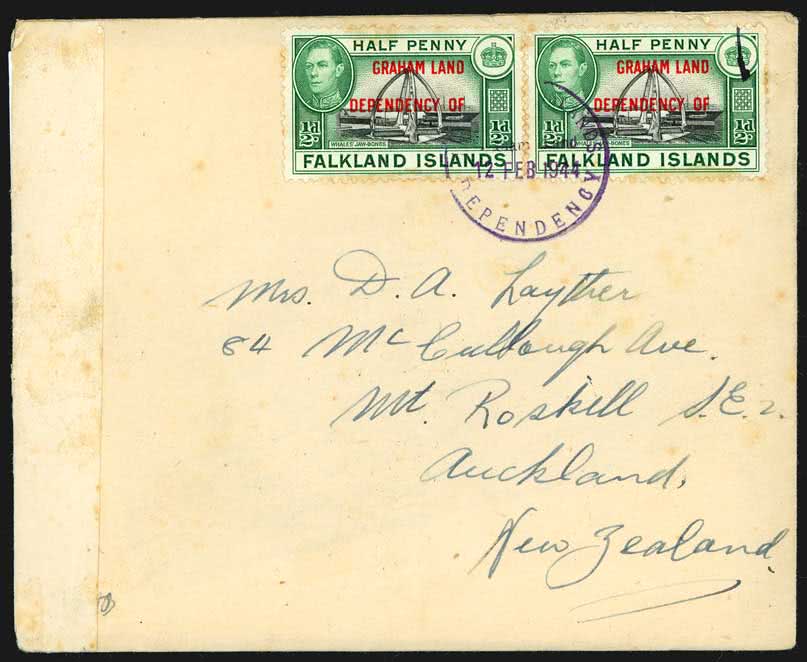 HALF PENNY
GRAHAM LAND
DEPENDENCY OF
½d ½d
WHALES' JAW-BONES
FALKLAND ISLANDS
HALF PENNY
GRAHAM LAND
DEPENDENCY OF
½d ½d
WHALES' JAW-BONES
FALKLAND ISLANDS
12 FEB 1944
DEPENDENCY
Mrs. D. A. Layther
84 McCullough Ave.
Mt. Roskill S.E 2.
Auckland,
New Zealand.